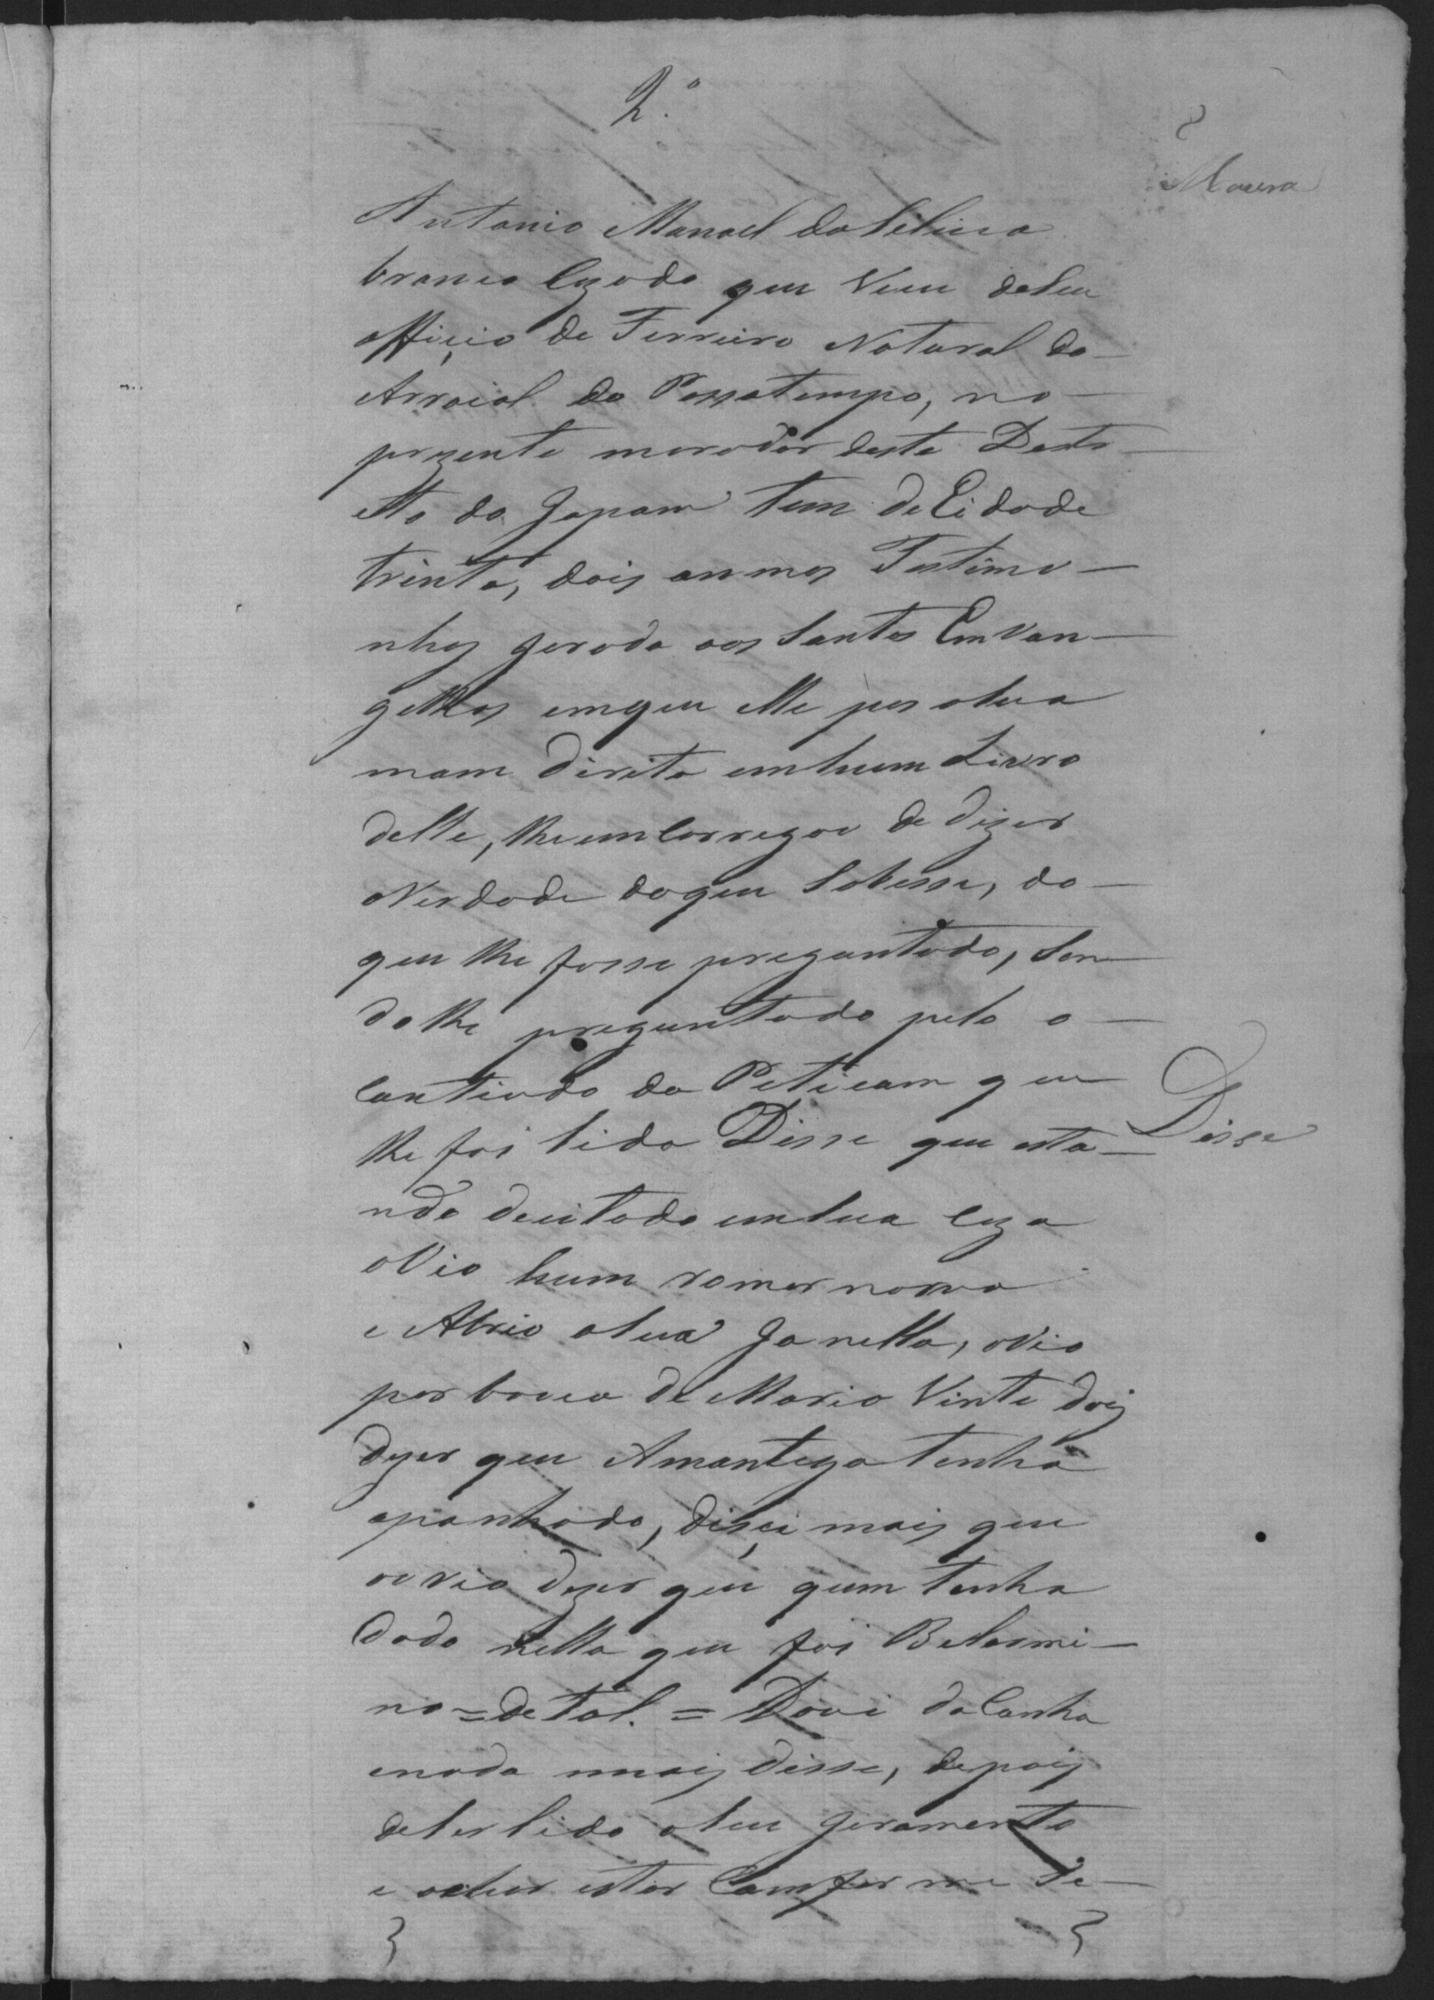 2.º
8
Moura
Antonio Manoel da Silvia
branco Cazado que Vive deseu
offiçio de Ferreiro Natural do
Arraial do Passatempo, no
prezente morador deste Destr
itto do Japam tem de Eidade
trinta, dois annos Testimu
nhas jurado aos Santos Emvan
gelhos emque elle pos asua
mam direita emhum Livro
delle, lhe emCarregou de dizer
aVerdade doque Sobesse, do
que lhe fosse preguntado, Sen
dolhe preguntado pelo o
Contiudo da Peticam que
lhe foi lida Disse que esta
Disse
ndo deeitado emsua Caza
oVio hum romor
e Abrio asua Janella, oVio
por bocca de Maria Vinte dois
dizer que Amantega tenha
apanhado, disçi mais que
ouvio dizer que quem tenha
dado nella que foi Belarmi
no = de tal. = Davi da Cunha
enada mais disse, depois
deser lido oseu juramento
e achar estar Comforme Se